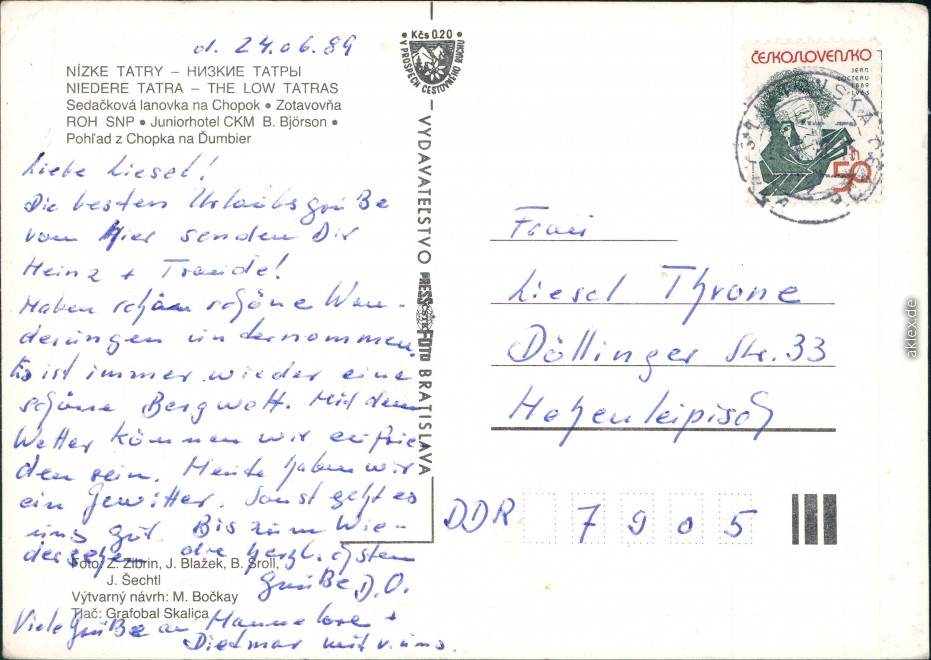 d. 24.06.89
NÍZKE TATRY – НИЗКИЕ ТАТРЫ
NIEDERE TATRA – THE LOW TATRAS
Sedačková lanovka na Chopok • Zotavovňa
ROH SNP • Juniorhotel CKM B. Björson •
Pohľad z Chopka na Ďumbier
Liebe Liesel!
Die besten Urlaubsgrüße
von hier senden Dir
Heinz + Traude!
Haben schon schöne Wan-
derungen unternommen.
Es ist immer wieder eine
schöne Bergwelt. Mit dem
Wetter können wir zufrie
den sein. Heute haben wir
ein Gewitter. Sonst geht es
uns gut. Bis zum Wie-
dersehen die herzlichsten
Grüße D.O.
Viele Grüße an Hannelore +
Dietmar mit v. uns.
Foto: Z. Zibrin, J. Blažek, B. Šroll,
J. Šechtl
Výtvarný návrh: M. Bočkay
Tlač: Grafobal Skalica
Kčs 0.20
V PROSPECH CESTOVNÉHO RUCHU
VYDAVATEĽSTVO PRESSFOTO BRATISLAVA
ČSTK
ČESKOSLOVENSKO
JEAN
COCTEAU
1889
1963
50 h
Frau
Liesel Throne
Döllinger Str. 33
Hohenleipisch
DDR 7905
aklex.de